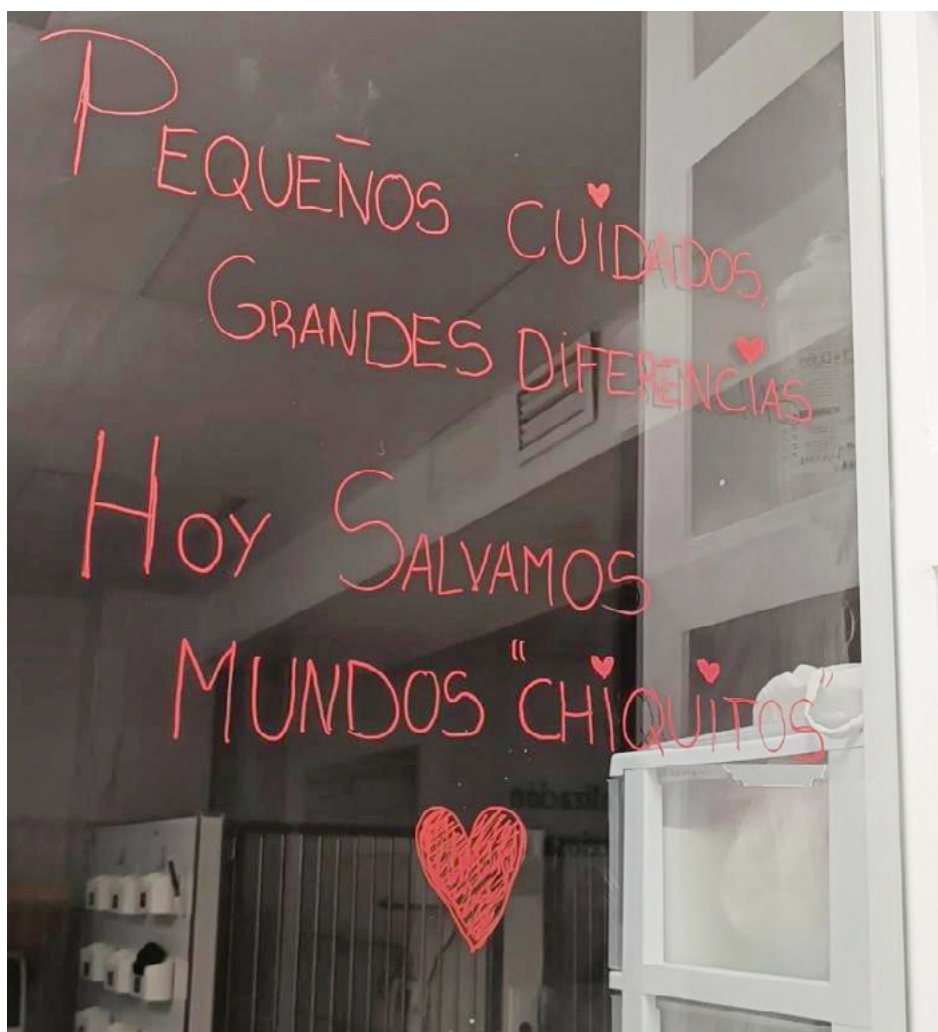 PEQUEÑOS CUIDADOS,
GRANDES DIFERENCIAS
HOY SALVAMOS
MUNDOS "CHIQUITOS"